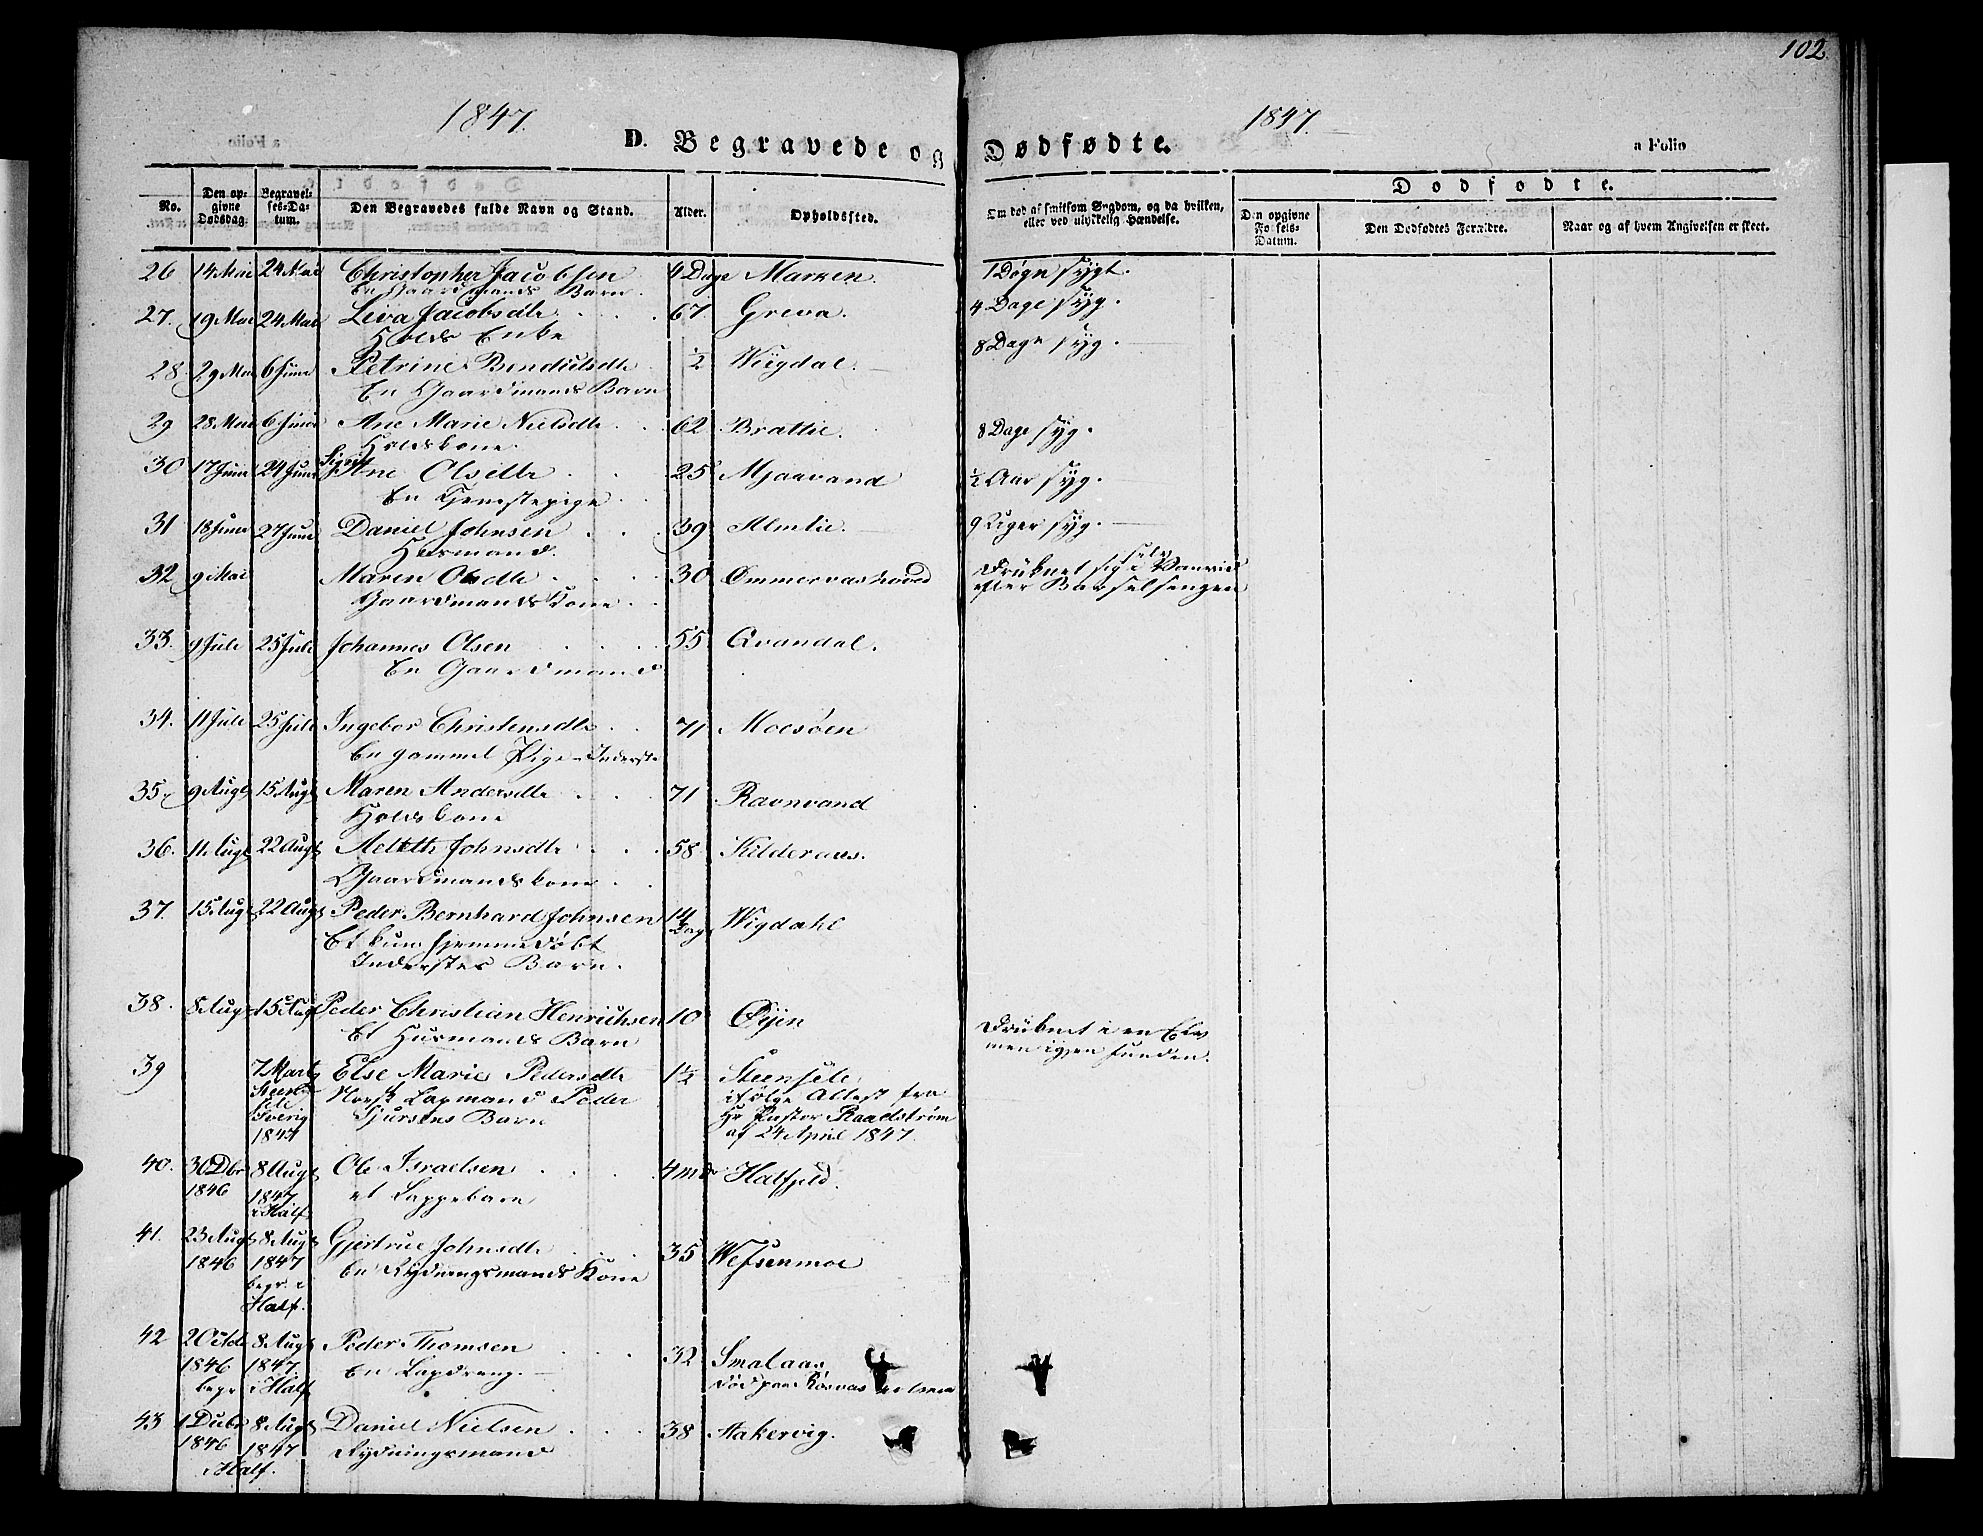 102.
1847.
1847.
D. Begravede og Dødfødte.
a Folio
No.
Den opgivne Dødsdag.
Begravelses-Datum.
Den Begravedes fulde Navn og Stand.
Alder.
Opholdssted.
Om død af smitsom Sygdom, og da hvilken, eller ved ulykkelig Hændelse.
Dødfødte.
Den opgivne Fødsels-Datum.
Den Dødfødtes Forældre.
Naar og af hvem Angivelsen er skeet.
26 14 Mai 24 Mai Christopher Jacobsen 4 Dage Marken. 1 Døgn sygt.
En Gaardmands Barn.
27. 19 Mai 24 Mai Liva Jacobsdtr 67 Greva. 4 Dage syg.
Holds Enke
28. 29 Mai 6 Juni Petrine Bendictsdtr ½ Wiigdal. 8 Dage syg.
En Gaardmands Barn
29 28 Mai 6 Juni Ane Marie Nielsdtr 62 Brattlie. 8 Dage syg.
Holdskone.
30 17 Juni 24 Juni Ane Olsdtr 25 Mjaavand ½ Aar syg.
En Tjenestepige
31 18 Juni 27 Juni Daniel Johnsen 39 Almlie. 9 Uger syg.
Husmand.
32 9 Mai Maren Olsdtr 30 Ømmervashoved Drüknet sig selv i
Gaardmands Kone. efter Barselsengen
33. 9 Juli 25 Juli Johannes Olsen 55 Qvandal.
En Gaardmand
34. 11 Juli 25 Juli Ingebor Christensdtr 71 Moesøen
En gammel Pige - Inderste
35. 9 Augt 15 Augt Maren Andersdtr 71 Ravnvand
Holdskone
36. 11 Augt 22 Augt Aeleth Johnsdtr 58 Kilderaas.
Gaardmandskone.
37. 15 Augt 22 Augt Peder Bernhard Johnsen 14 Dage Wigdahl
Et kun hjemmedöbt
Inderstes Barn.
38. 8 Augt 15 Augt Peder Christian Henrichsen 10 Øijen Drüknet i en Elv
Et Husmands Barn men igjen funden.
39 7 Marts Else Marie Pedersdtr 1½ Steensele
Norsk Lapmand Peder ifölge Attest fra
Sjursens Barn Hr Pastor Raadström
1847 af 24 April 1847.
40. 30 Dbr 8 Augt Ole Israelsen 4 md Hatfjeld.
1846 1847 et Lappebarn
i Hatf.
41. 23 Augt 8 Augt Gjertrue Johnsdtr 35 Wefsenmoe
1846 1847 En Rydningsmands Kone
begr i
Hatf.
42 8 Augt Peder Thomsen 32 Smalaas
1846 1847. En Lapdreng. död paa
begr i Hatf
43 8 Augt Daniel Nielsen 38 Aakervig.
1846 1847 Rydningsmand
i Hatf.